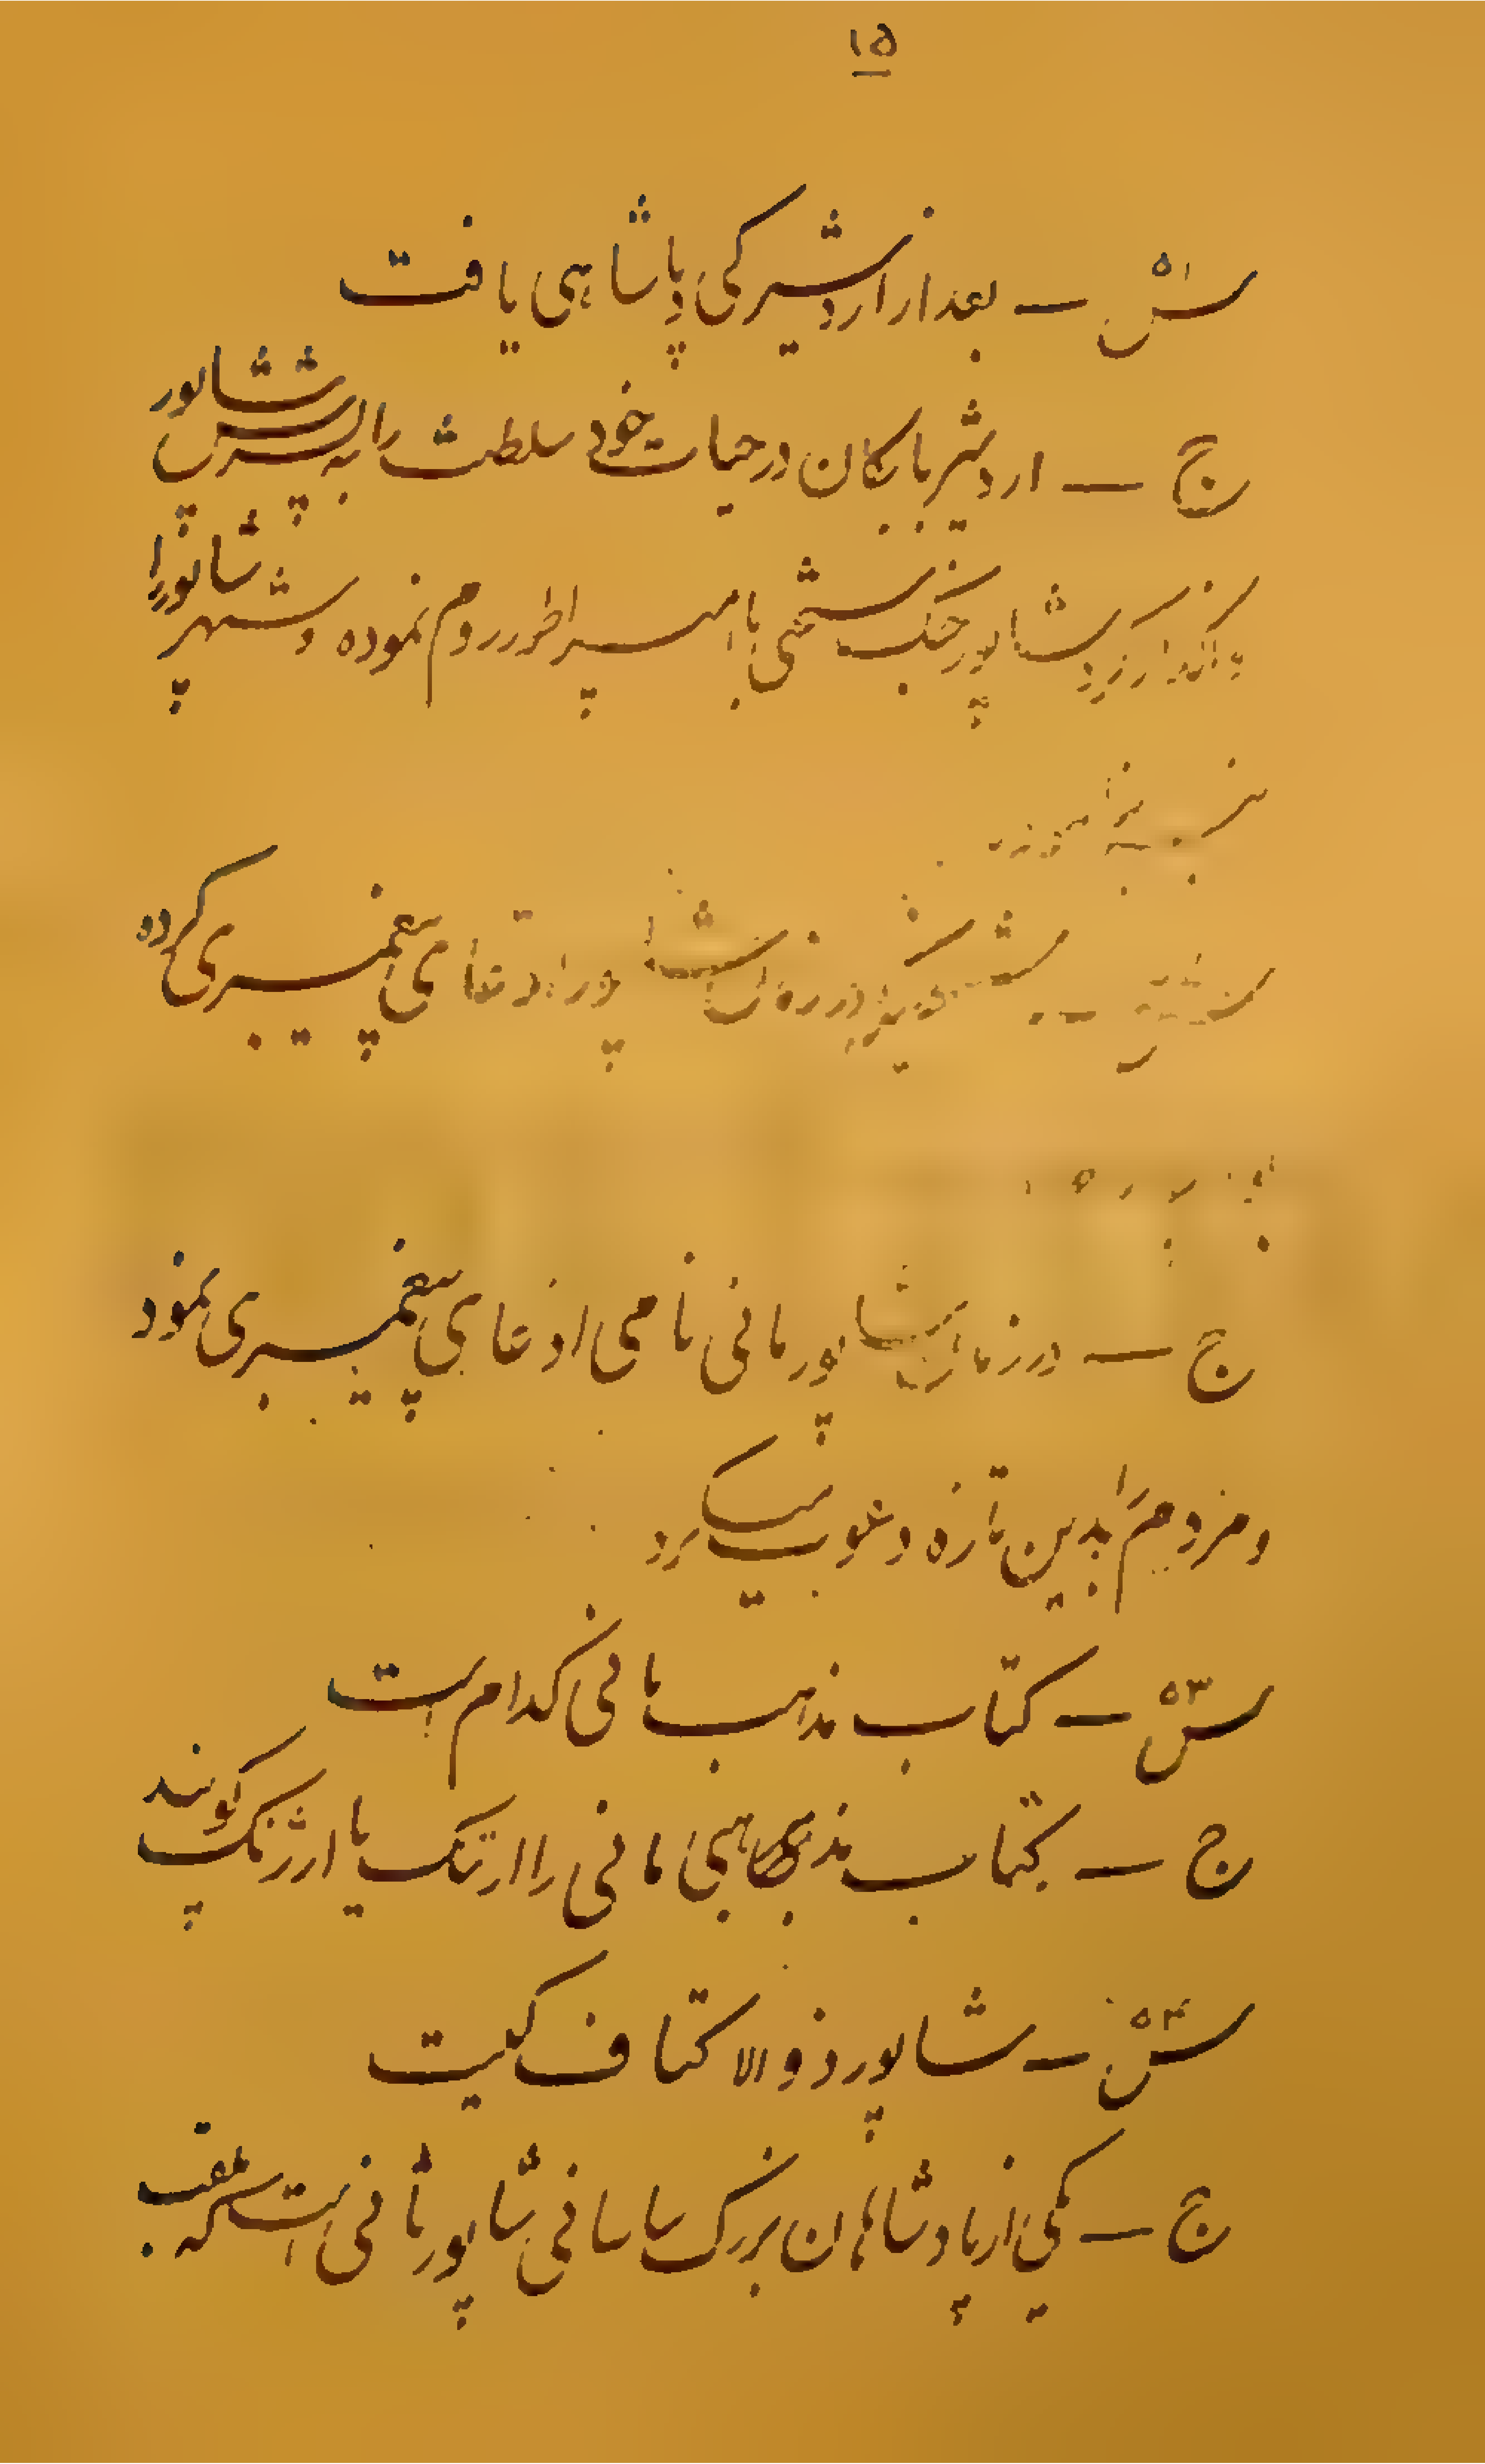 ۱۵
س۵۱ — بعد از اردشیر کی پادشاهی یافت
ج — اردشیر بابکان در حیات خود سلطنت را به پسرش شاپور
شاپور جنک سختی با امپراطور روم نموده و شهر شاپور را
در زمان شاپور ادعای پیغمبری کرده
ج — در زمان شاپور مانی نامی ادعای پیغمبری نمود
و مردم را بدین تازه دعوت میکرد
س۵۳ — کتاب مذهب مانی کدام است
ج — کتاب مذهبی مانی را ارتنک یا ارژنک گویند
س۵۴ — شاپور ذوالاکتاف کیست
ج — یکی از پادشاهان بزرک ساسانی شاپور ثانی است که ملقب